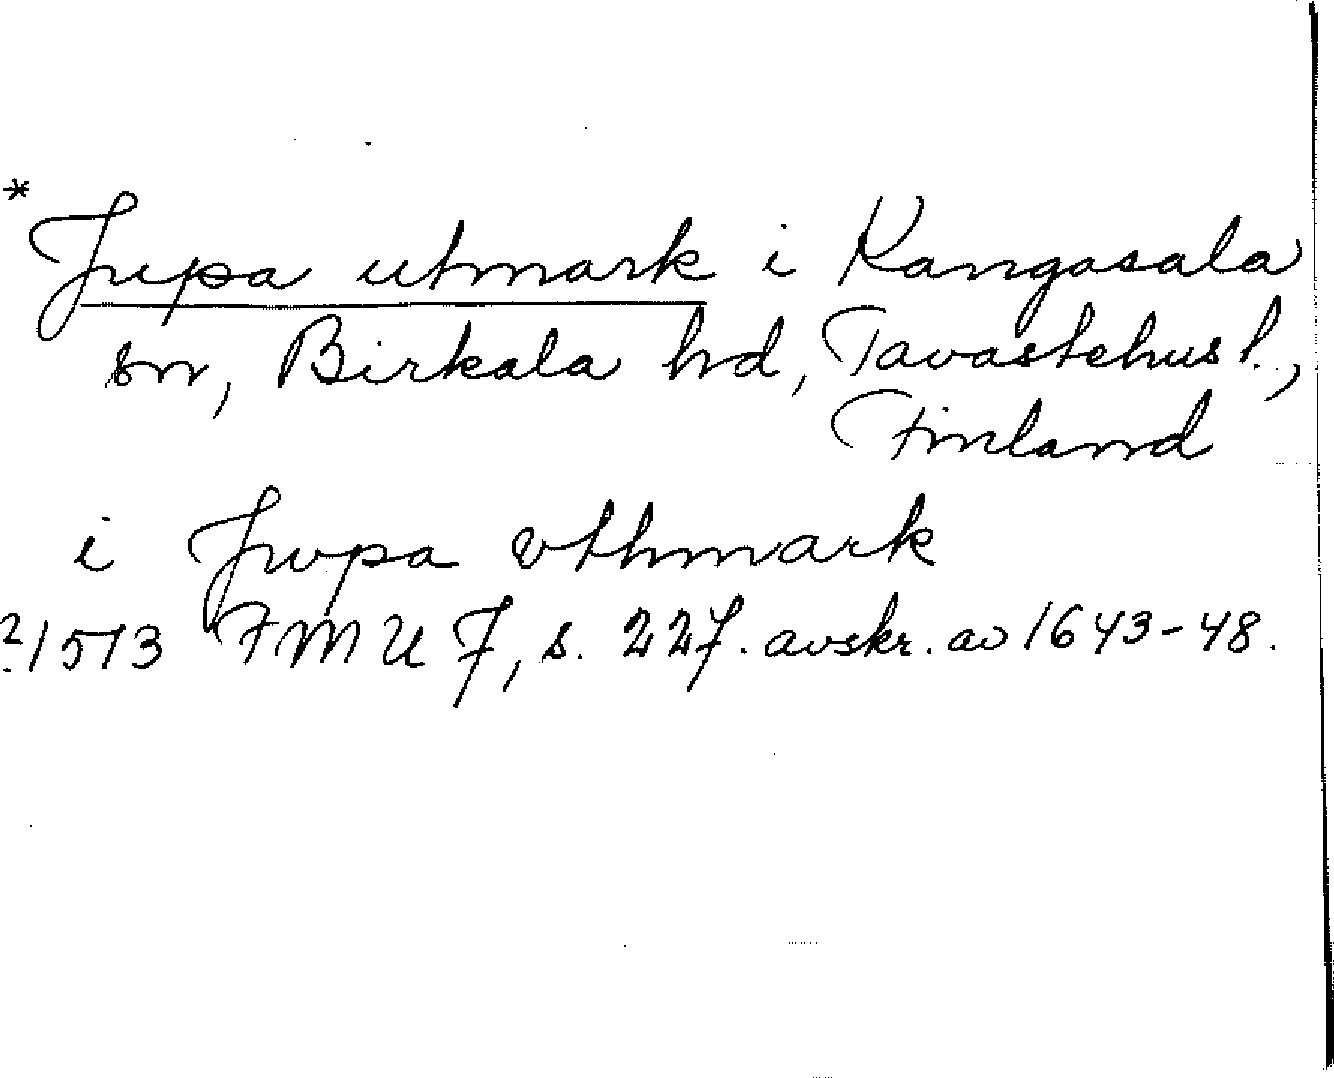 * Jupa utmark i Kangasala
sn, Birkala hd, Tavastehus l.,
Finland
i Jwpa vthmark
?1513 FMU 7, s. 227. avskr. av 1643-48.